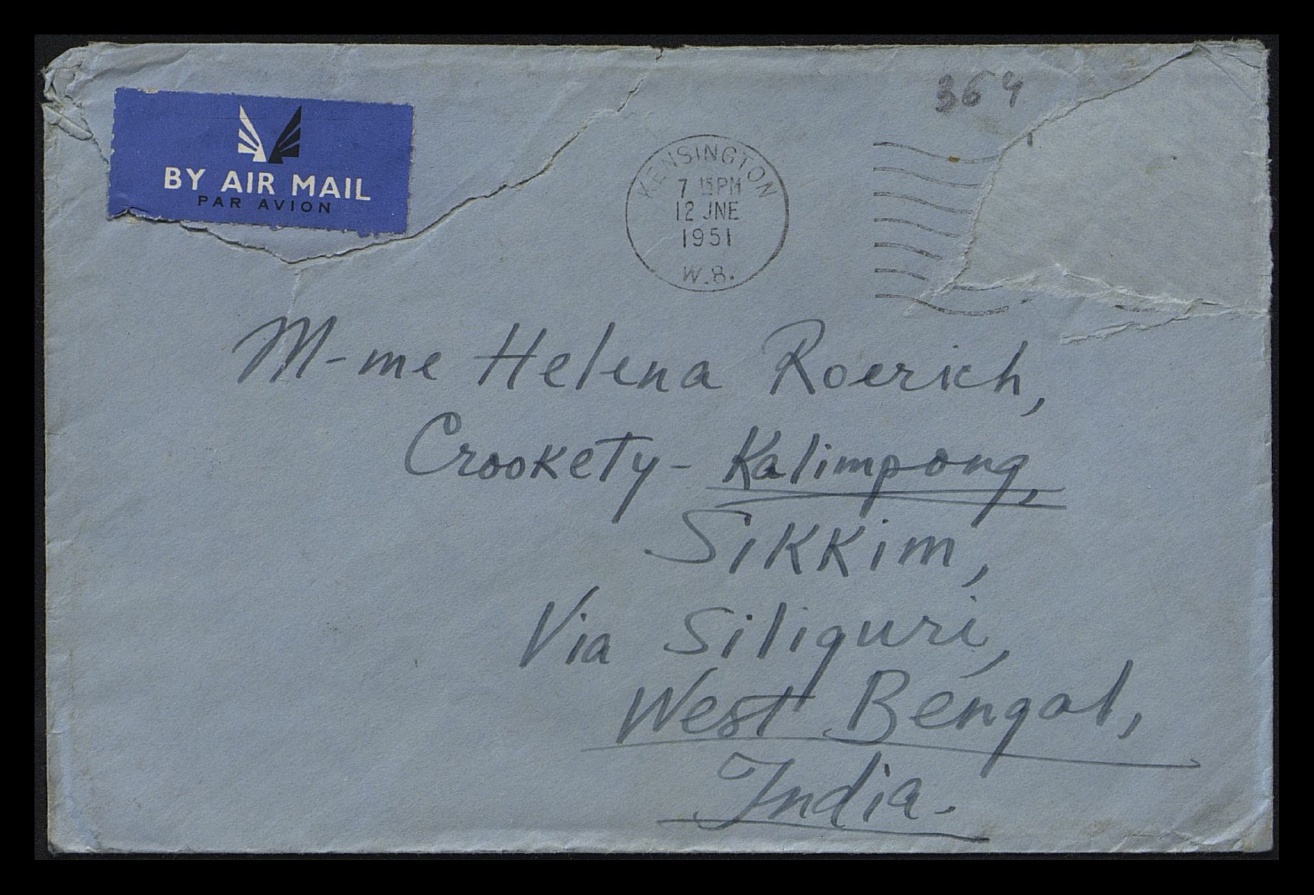 364
BY AIR MAIL
PAR AVION
KENSINGTON
7 15 PM
12 JNE
1951
W.8.
M-me Helena Roerich,
Crookety - Kalimpong,
Sikkim,
Via Siliguri,
West Bengal,
India.